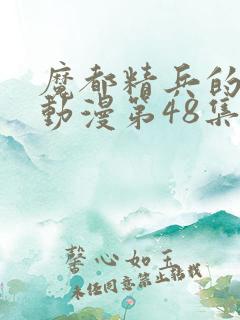 魔都精兵的
動漫第48集
馨心如玉
未经同意禁止转载